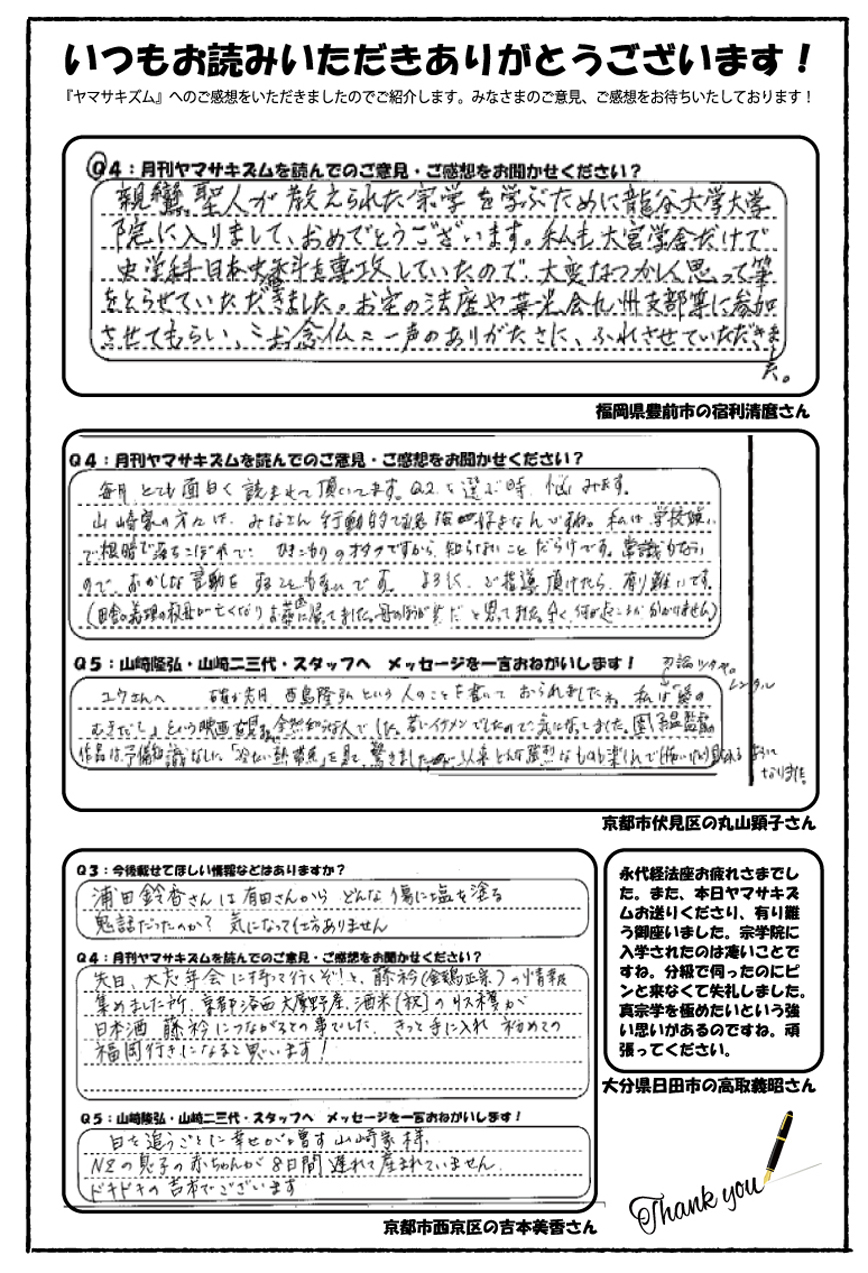 いつもお読みいただきありがとうございます！
『ヤマサキズム』へのご感想をいただきましたのでご紹介します。みなさまのご意見、ご感想をお待ちいたしております！
Q4：月刊ヤマサキズムを読んでのご意見・ご感想をお聞かせください？
親鸞聖人が教えられた宗学を学ぶために龍谷大学大学
院に入りまして、おめでとうございます。私も大宮学舎だけで
史学科日本史 を専攻していたので、大変なつかしく思って筆
をとらせていただきました。お宅の法座や華光会九州支部等に参加
させてもらい、ミお念仏ミ一声のありがたさに、ふれさせていただきま
した。
福岡県豊前市の宿利清麿さん
Q4：月刊ヤマサキズムを読んでのご意見・ご感想をお聞かせください？
毎月とても面白く読ませて頂いてます。Q2.を選ぶ時、悩みます。
山崎家の方々は、みなさん行動的で 好きなんですね。私は学校嫌い
で根暗で落ちこぼれで、ひきこもりのオタクですから、知らないことだらけです。常識もない
ので、おかしな言動をすることも多いです。よろしく、ご指導頂けたら、有り難いです。
(田舎の義理の祖母が亡くなりお葬 に帰ってました。母のほうが だと思ってました。全く、何が起こるか分かりません)
Q5：山﨑隆弘・山﨑二三代・スタッフへ　メッセージを一言おねがいします！
勿論ツタヤの
レンタル
ユウさんへ　確か先月 西島隆弘という人のことを書いておられましたね 私は「愛の
むきだし」という映画を見るまで全然知らない人でした。若いイケメンでしたので気になってました。園子温監督の
作品は、予備知識なしに「冷たい熱帯魚」を見て、驚きました 以来どんな強烈なものも楽しんで(怖いけど)見れる ように
なりました。
京都市伏見区の丸山顕子さん
Q3：今後載せてほしい情報などはありますか？
浦田鈴香さんは有田さんから どんな傷に塩を塗る
鬼話だったのか？ 気になって仕方ありません
Q4：月刊ヤマサキズムを読んでのご意見・ご感想をお聞かせください？
先日、大忘年会に持って行くぞ！と、藤衿(金鵄正宗)の情報
集めました所、京都洛西大原野産、酒米[祝]の が
日本酒 藤衿につながるとの事でした、きっと手に入れ 初めての
福岡行きになると思います！
Q5：山﨑隆弘・山﨑二三代・スタッフへ　メッセージを一言おねがいします！
日を追うごとに幸せが増す山崎家様、
N2の息子の赤ちゃんが8日間遅れて産まれていません
ドキドキの吉本でございます
京都市西京区の吉本美香さん
永代経法座お疲れさまでし
た。また、本日ヤマサキズ
ムお送りくださり、有り難
う御座いました。宗学院に
入学されたのは凄いことで
すね。分級で伺ったのにピ
ンと来なくて失礼しました。
真宗学を極めたいという強
い思いがあるのですね。頑
張ってください。
大分県日田市の高取義昭さん
Thank you